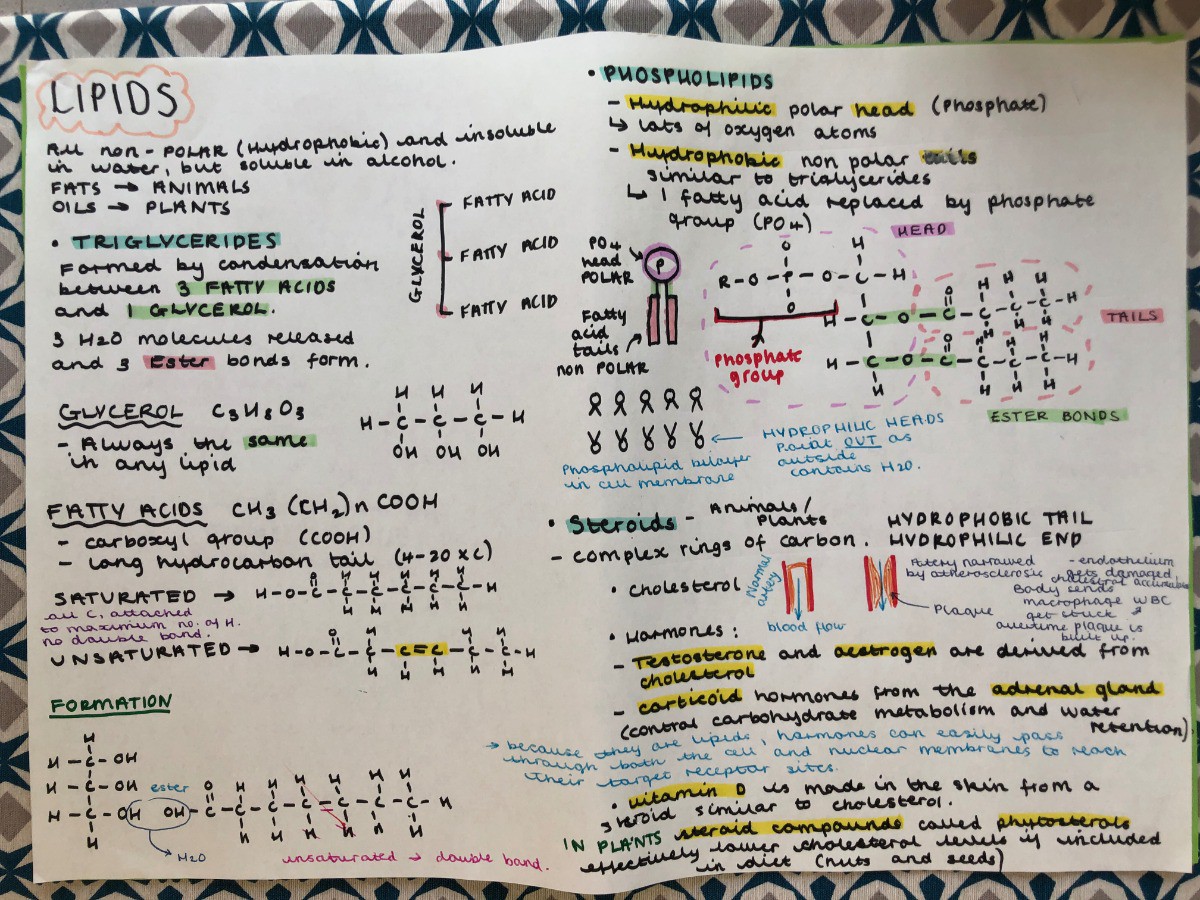 LIPIDS
All non-POLAR (Hydrophobic) and insoluble
in water, but soluble in alcohol.
FATS → ANIMALS
OILS → PLANTS
• TRIGLYCERIDES
Formed by condensation
between 3 FATTY ACIDS
and 1 GLYCEROL.
3 H2O molecules released
and 3 Ester bonds form.
GLYCEROL
FATTY ACID
FATTY ACID
FATTY ACID
GLYCEROL C3H8O3
- Always the same
in any lipid
H H H
H-C-C-C-H
OH OH OH
FATTY ACIDS CH3 (CH2)n COOH
- carboxyl group (COOH)
- long hydrocarbon tail (4-20 x C)
SATURATED →
all C, attached
to maximum no. of H.
no double bond.
UNSATURATED →
FORMATION
ester
H2O
unsaturated → double bond.
• PHOSPHOLIPIDS
- Hydrophilic polar head (Phosphate)
↳ lots of oxygen atoms
- Hydrophobic non polar tails
similar to triglycerides
↳ 1 fatty acid replaced by phosphate
group (PO4)
PO4
head
POLAR
P
Fatty
acid
tails
non POLAR
HEAD
TAILS
Phosphate
group
ESTER BONDS
Phospholipid bilayer
in cell membrane
← HYDROPHILIC HEADS
Point OUT as
outside
contains H2O.
• Steroids - Animals/
Plants
HYDROPHOBIC TAIL
HYDROPHILIC END
- complex rings of carbon.
• cholesterol
Normal
artery
blood flow
Artery narrowed
by atherosclerosis
Plaque
- endothelium
gets damaged,
Body sends
macrophage WBC
get stuck
overtime plaque is
built up.
• Hormones:
- Testosterone and oestrogen are derived from
cholesterol
- corticoid hormones from the adrenal gland
(control carbohydrate metabolism and water
retention)
→ because they are lipids, hormones can easily pass
through both the cell and nuclear membranes to reach
their target receptor sites.
• vitamin D is made in the skin from a
steroid similar to cholesterol.
IN PLANTS steroid compounds called phytosterols
effectively lower cholesterol levels if included
in diet (nuts and seeds)